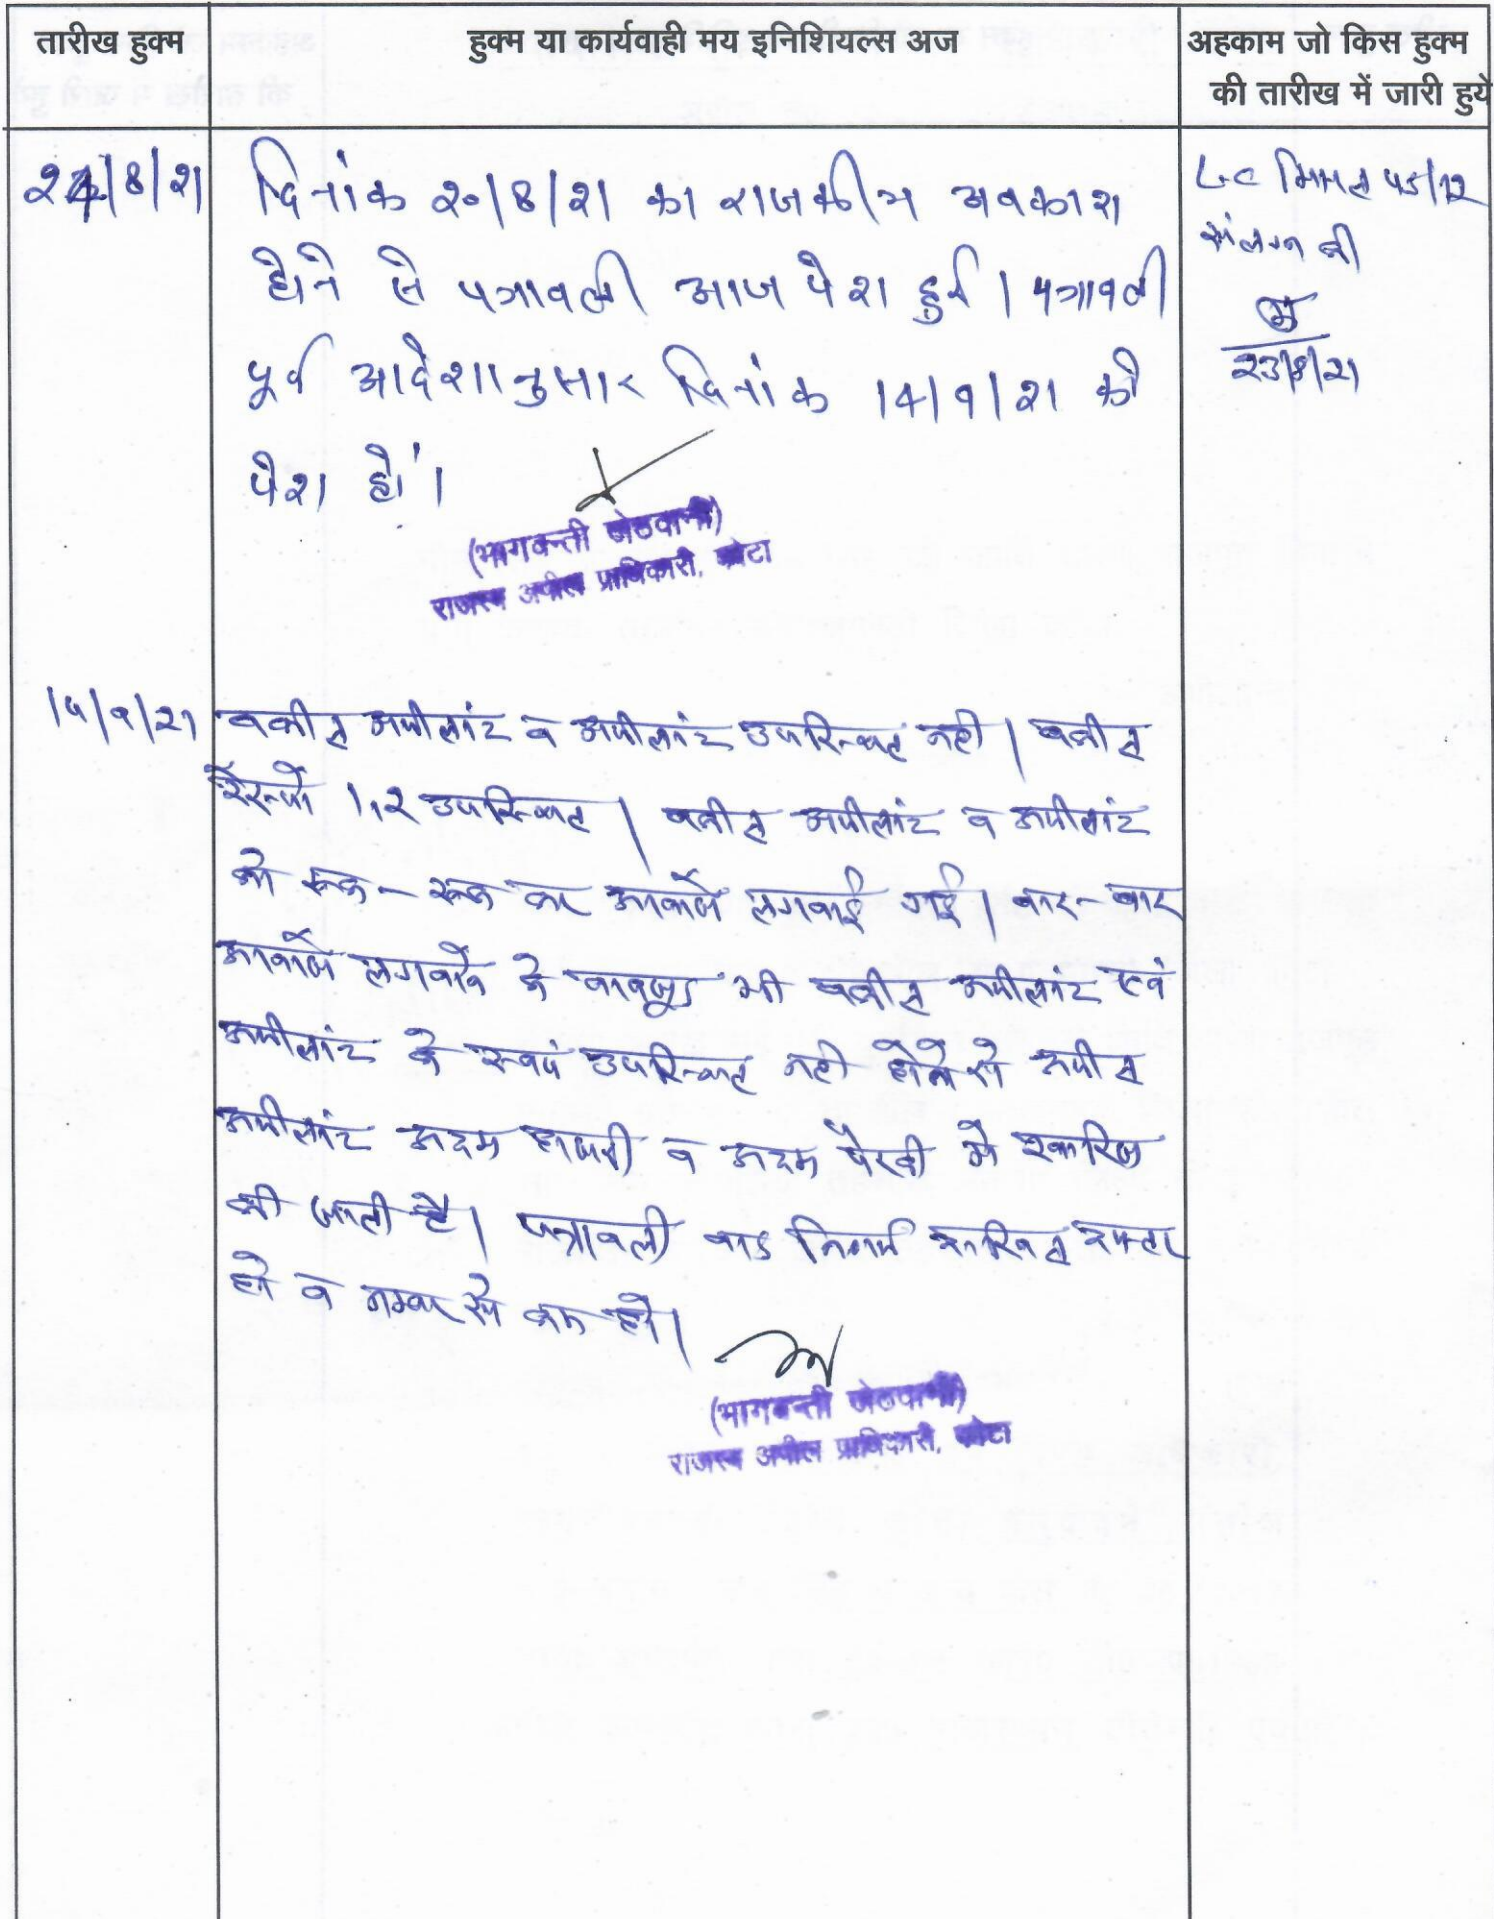 तारीख हुक्म
हुक्म या कार्यवाही मय इनिशियल्स अज
अहकाम जो किस हुक्म
की तारीख में जारी हुये
24/8/21
दिनांक 20/8/21 का राजकीय अवकाश
होने से पत्रावली आज पेश हुई। पत्रावली
पूर्व आदेशानुसार दिनांक 14/9/21 को
पेश हो।
(भागवन्ती जेठवानी)
राजस्व अपील प्राधिकारी, कोटा
LC मिसल 45/12
संलग्न की
23/8/21
14/9/21
वकील अपीलांट व अपीलांट उपस्थित नही। वकील
रेस्पो 1,2 उपस्थित। वकील अपीलांट व अपीलांट
को रूक-रूक कर आवाजे लगवाई गई। बार-बार
आवाजे लगवाने के बावजूद भी वकील अपीलांट एवं
अपीलांट के स्वयं उपस्थित नही होने से अपील
अपीलांट अदम हाजरी व अदम पैरवी मे खारिज
की जाती है। पत्रावली बाद निर्णय दाखिल दफ्तर
हो व नम्बर से कम हो।
(भागवन्ती जेठवानी)
राजस्व अपील प्राधिकारी, कोटा